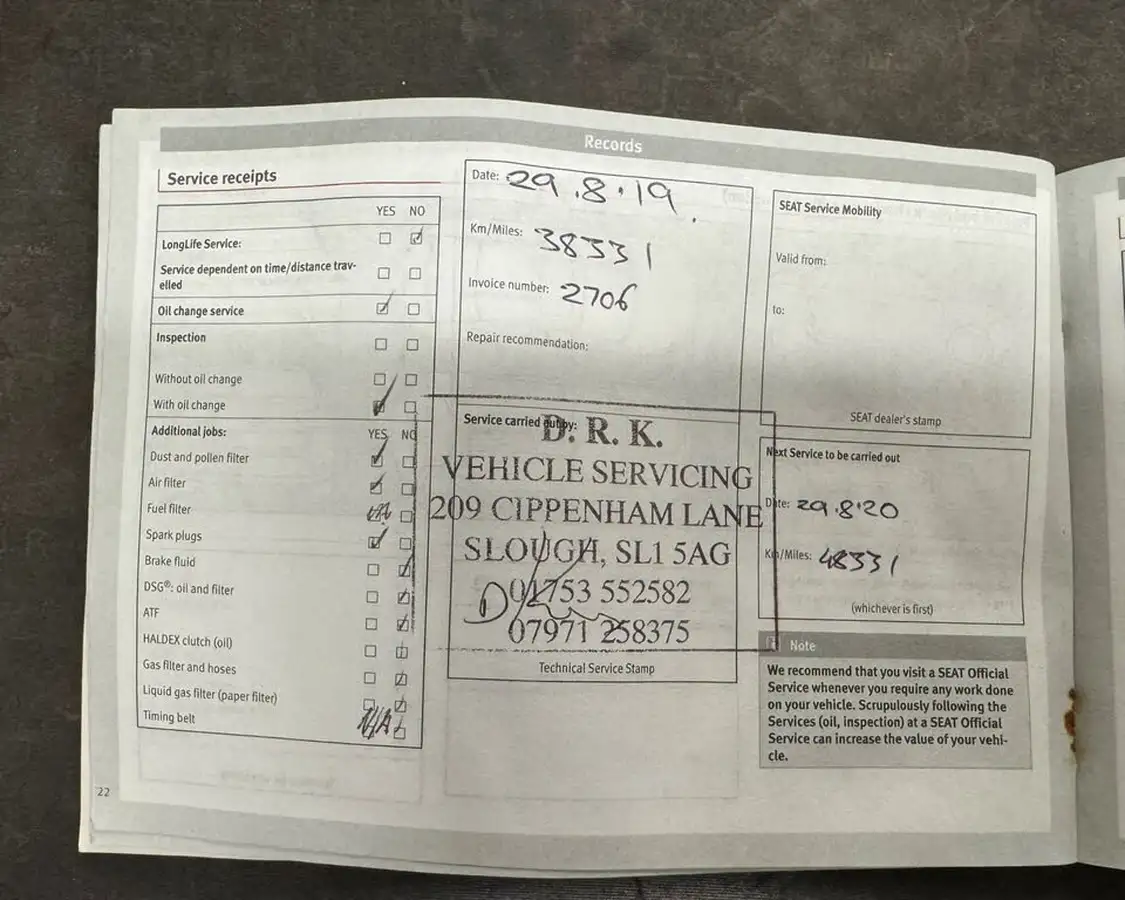 Records
Service receipts
YES NO
LongLife Service:
Service dependent on time/distance trav-
elled
Oil change service
Inspection
Without oil change
With oil change
Additional jobs:
YES NO
Dust and pollen filter
Air filter
Fuel filter
Spark plugs
Brake fluid
DSG®: oil and filter
ATF
HALDEX clutch (oil)
Gas filter and hoses
Liquid gas filter (paper filter)
Timing belt
N/A
22
Date: 29.8.19.
Km/Miles: 38331
Invoice number: 2706
Repair recommendation:
Service carried out by:
D. R. K.
VEHICLE SERVICING
209 CIPPENHAM LANE
SLOUGH, SL1 5AG
01753 552582
07971 258375
Technical Service Stamp
SEAT Service Mobility
Valid from:
to:
SEAT dealer's stamp
Next Service to be carried out
Date: 29.8.20
Km/Miles: 48331
(whichever is first)
Note
We recommend that you visit a SEAT Official
Service whenever you require any work done
on your vehicle. Scrupulously following the
Services (oil, inspection) at a SEAT Official
Service can increase the value of your vehi-
cle.